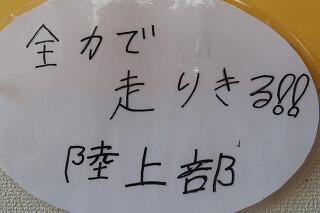 全力で
走りきる!!
陸上部